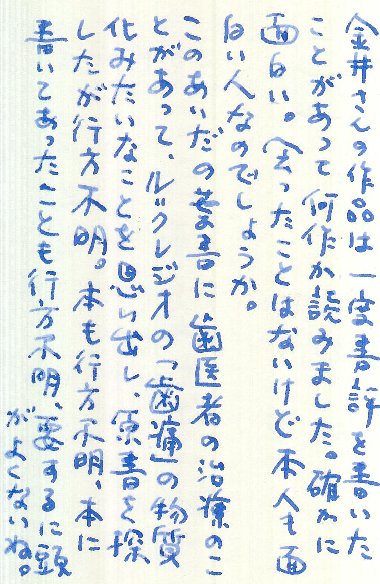 金井さんの作品は一度書評を書いた
ことがあって何作か読みました。確かに
面白い。会ったことはないけど本人も面
白い人なのでしょうか。
このあいだの葉書に歯医者の治療のこ
とがあって、ル・クレジオの「歯痛」の物質
化みたいなことを思い出し、原書を探
したが行方不明。本も行方不明、本に
書いてあったことも行方不明、要するに頭
がよくないね。